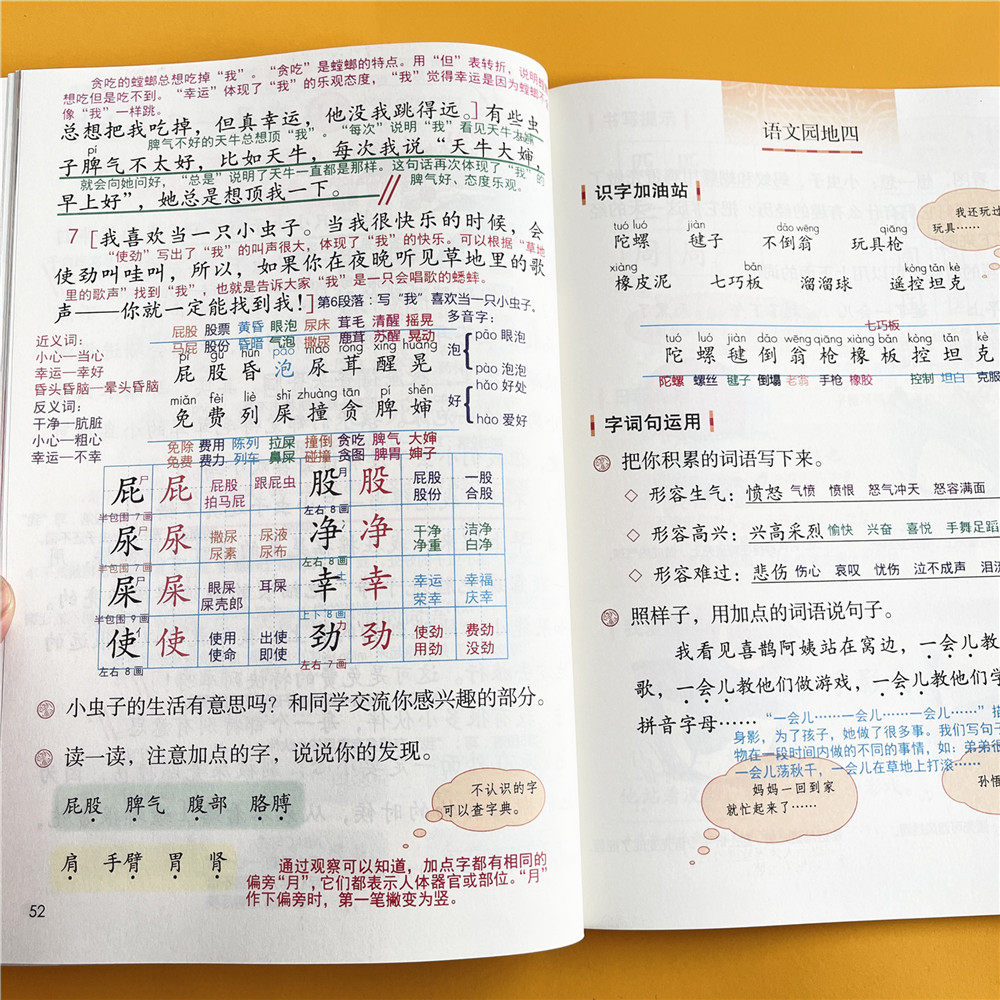 贪吃的螳螂总想吃掉“我”。“贪吃”是螳螂的特点。用“但”表转折，说明螳螂
想吃但是吃不到。“幸运”体现了“我”的乐观态度，“我”觉得幸运是因为螳螂不
像“我”一样跳。
总想把我吃掉，但真幸运，他没我跳得远。]有些虫
脾气不好的天牛总想顶“我”。“每次”说明“我”看见天牛
pí
子脾气不太好，比如天牛，每次我说“天牛大婶，
就会向她问好，“总是”说明了天牛一直都是那样。这句话再次体现了“我”的
早上好”，她总是想顶我一下。
脾气好、态度乐观。
7 [我喜欢当一只小虫子。当我很快乐的时候，会
“使劲”写出了“我”的叫声很大，体现了“我”的快乐。可以根据“草地
使劲叫哇叫，所以，如果你在夜晚听见草地里的歌
里的歌声”找到“我”，也就是告诉大家“我”是一只会唱歌的蟋蟀。
声——你就一定能找到我！]第6段落：写“我”喜欢当一只小虫子。
近义词：
小心—当心
幸运—幸好
昏头昏脑—晕头昏脑
反义词：
干净—肮脏
小心—粗心
幸运—不幸
屁股 股票 黄昏 眼泡 尿床 茸毛 清醒 摇晃
马屁 股份 昏暗 气泡 撒尿 鹿茸 苏醒 晃动
pì gǔ hūn pào niào róng xǐng huàng
屁 股 昏 泡 尿 茸 醒 晃
miǎn fèi liè shǐ zhuàng tān pí shěn
免 费 列 屎 撞 贪 脾 婶
免除 费用 陈列 拉屎 撞倒 贪吃 脾气 大婶
免费 费力 列车 鼻屎 碰撞 贪图 脾胃 婶子
多音字：
泡 pào 眼泡
pāo 泡泡
好 hǎo 好处
hào 爱好
屁 尸 屁 屁股 跟屁虫 股 月 股 屁股 一股
拍马屁 股份 合股
半包围 7画 左右 8画
尿 尸 尿 撒尿 尿液 净 净 干净 洁净
尿素 尿布 净重 白净
半包围 7画 左右 8画
屎 尸 屎 眼屎 耳屎 幸 幸 幸运 幸福
屎壳郎 荣幸 庆幸
半包围 9画 上下 8画
使 亻 使 使用 出使 劲 力 劲 使劲 费劲
使命 即使 用劲 没劲
左右 8画 左右 7画
小虫子的生活有意思吗？和同学交流你感兴趣的部分。
读一读，注意加点的字，说说你的发现。
屁股 脾气 腹部 胳膊
肩 手臂 胃 肾
不认识的字
可以查字典。
通过观察可以知道，加点字都有相同的
偏旁“月”，它们都表示人体器官或部位。“月”
作下偏旁时，第一笔撇变为竖。
52
语文园地四
识字加油站
我还玩过
玩具……
tuó luó jiàn dǎo wēng qiāng
陀螺 毽子 不倒翁 玩具枪
xiàng bǎn kòng tǎn kè
橡皮泥 七巧板 溜溜球 遥控坦克
七巧板
tuó luó jiàn dǎo wēng qiāng xiàng bǎn kòng tǎn kè
陀 螺 毽 倒 翁 枪 橡 板 控 坦 克
陀螺 螺丝 毽子 倒塌 老翁 手枪 橡胶 控制 坦白 克服
字词句运用
把你积累的词语写下来。
◇ 形容生气：愤怒 气愤 愤恨 怒气冲天 怒容满面
◇ 形容高兴：兴高采烈 愉快 兴奋 喜悦 手舞足蹈
◇ 形容难过：悲伤 伤心 哀叹 忧伤 泣不成声
照样子，用加点的词语说句子。
我看见喜鹊阿姨站在窝边，一会儿教
歌，一会儿教他们做游戏，一会儿教他们学
拼音字母……
“一会儿……一会儿……一会儿……”
身影，为了孩子，她做了很多事。我们写句子
物在一段时间内做的不同的事情，如：弟弟很
一会儿荡秋千，一会儿在草地上打滚……
妈妈一回到家
就忙起来了……
孙悟